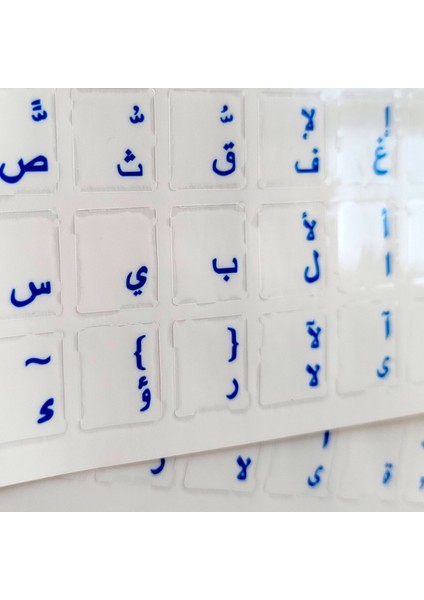 ً ُ ٌ لإ إ
ص ث ق ف غ
لأ أ
س ي ب ل ا
~ { } لآ آ
ء ؤ ر لا ى
ر لا ى ة